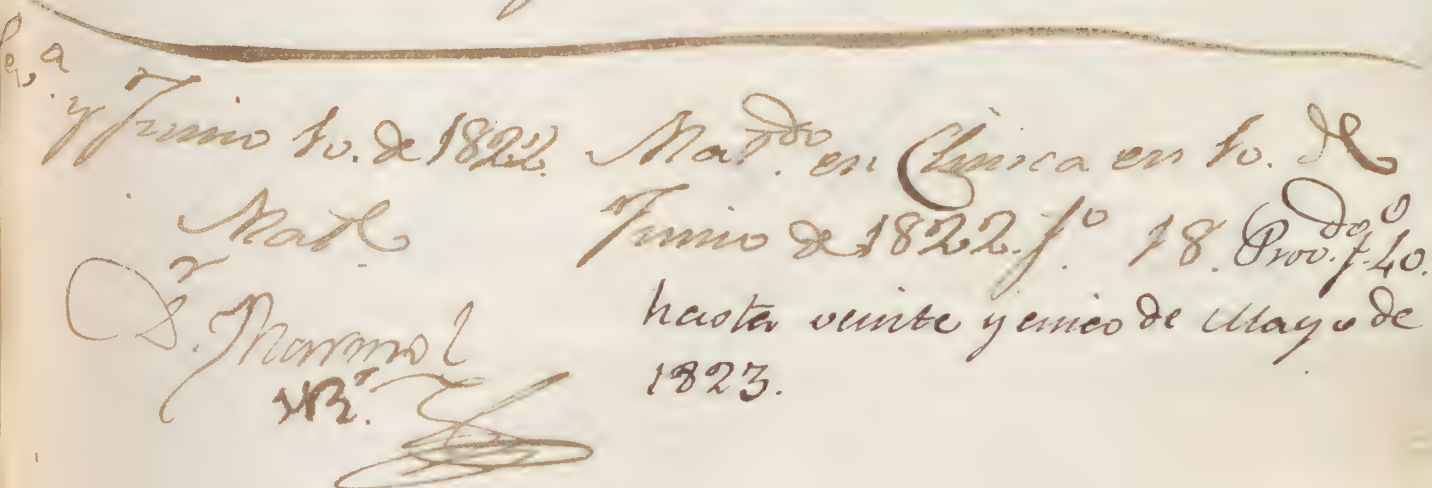 Sev.ª
y Junio 10. de 1822.
Matl
D.r Marmol
VR.r
Mat.do en Clinica en 10. de
Junio de 1822. fº 18. Prov.do fº 40.
hasta veinte y cinco de Mayo de
1823.